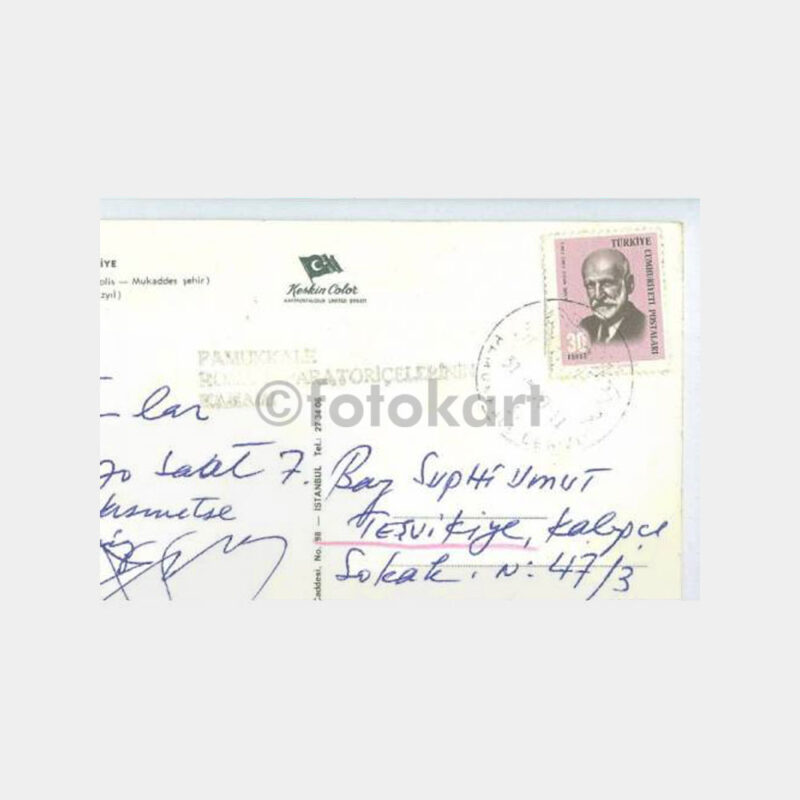 İYE
olis — Mukaddes şehir)
zyıl)
Keskin Color
KARTPOSTALCILIK LIMITED ŞİRKETİ
TÜRKİYE
CUMHURİYETİ POSTALARI
30
PAMUKKALE
KABADI
©fotokart
lar
70 Saat 7.
kısmetse
Caddesi, No. 98 — İSTANBUL Tel.: 27 34 06
Bay SupHi Umut
TEŞVİKİYe, Kalıpçı
Sokak. N: 47/3